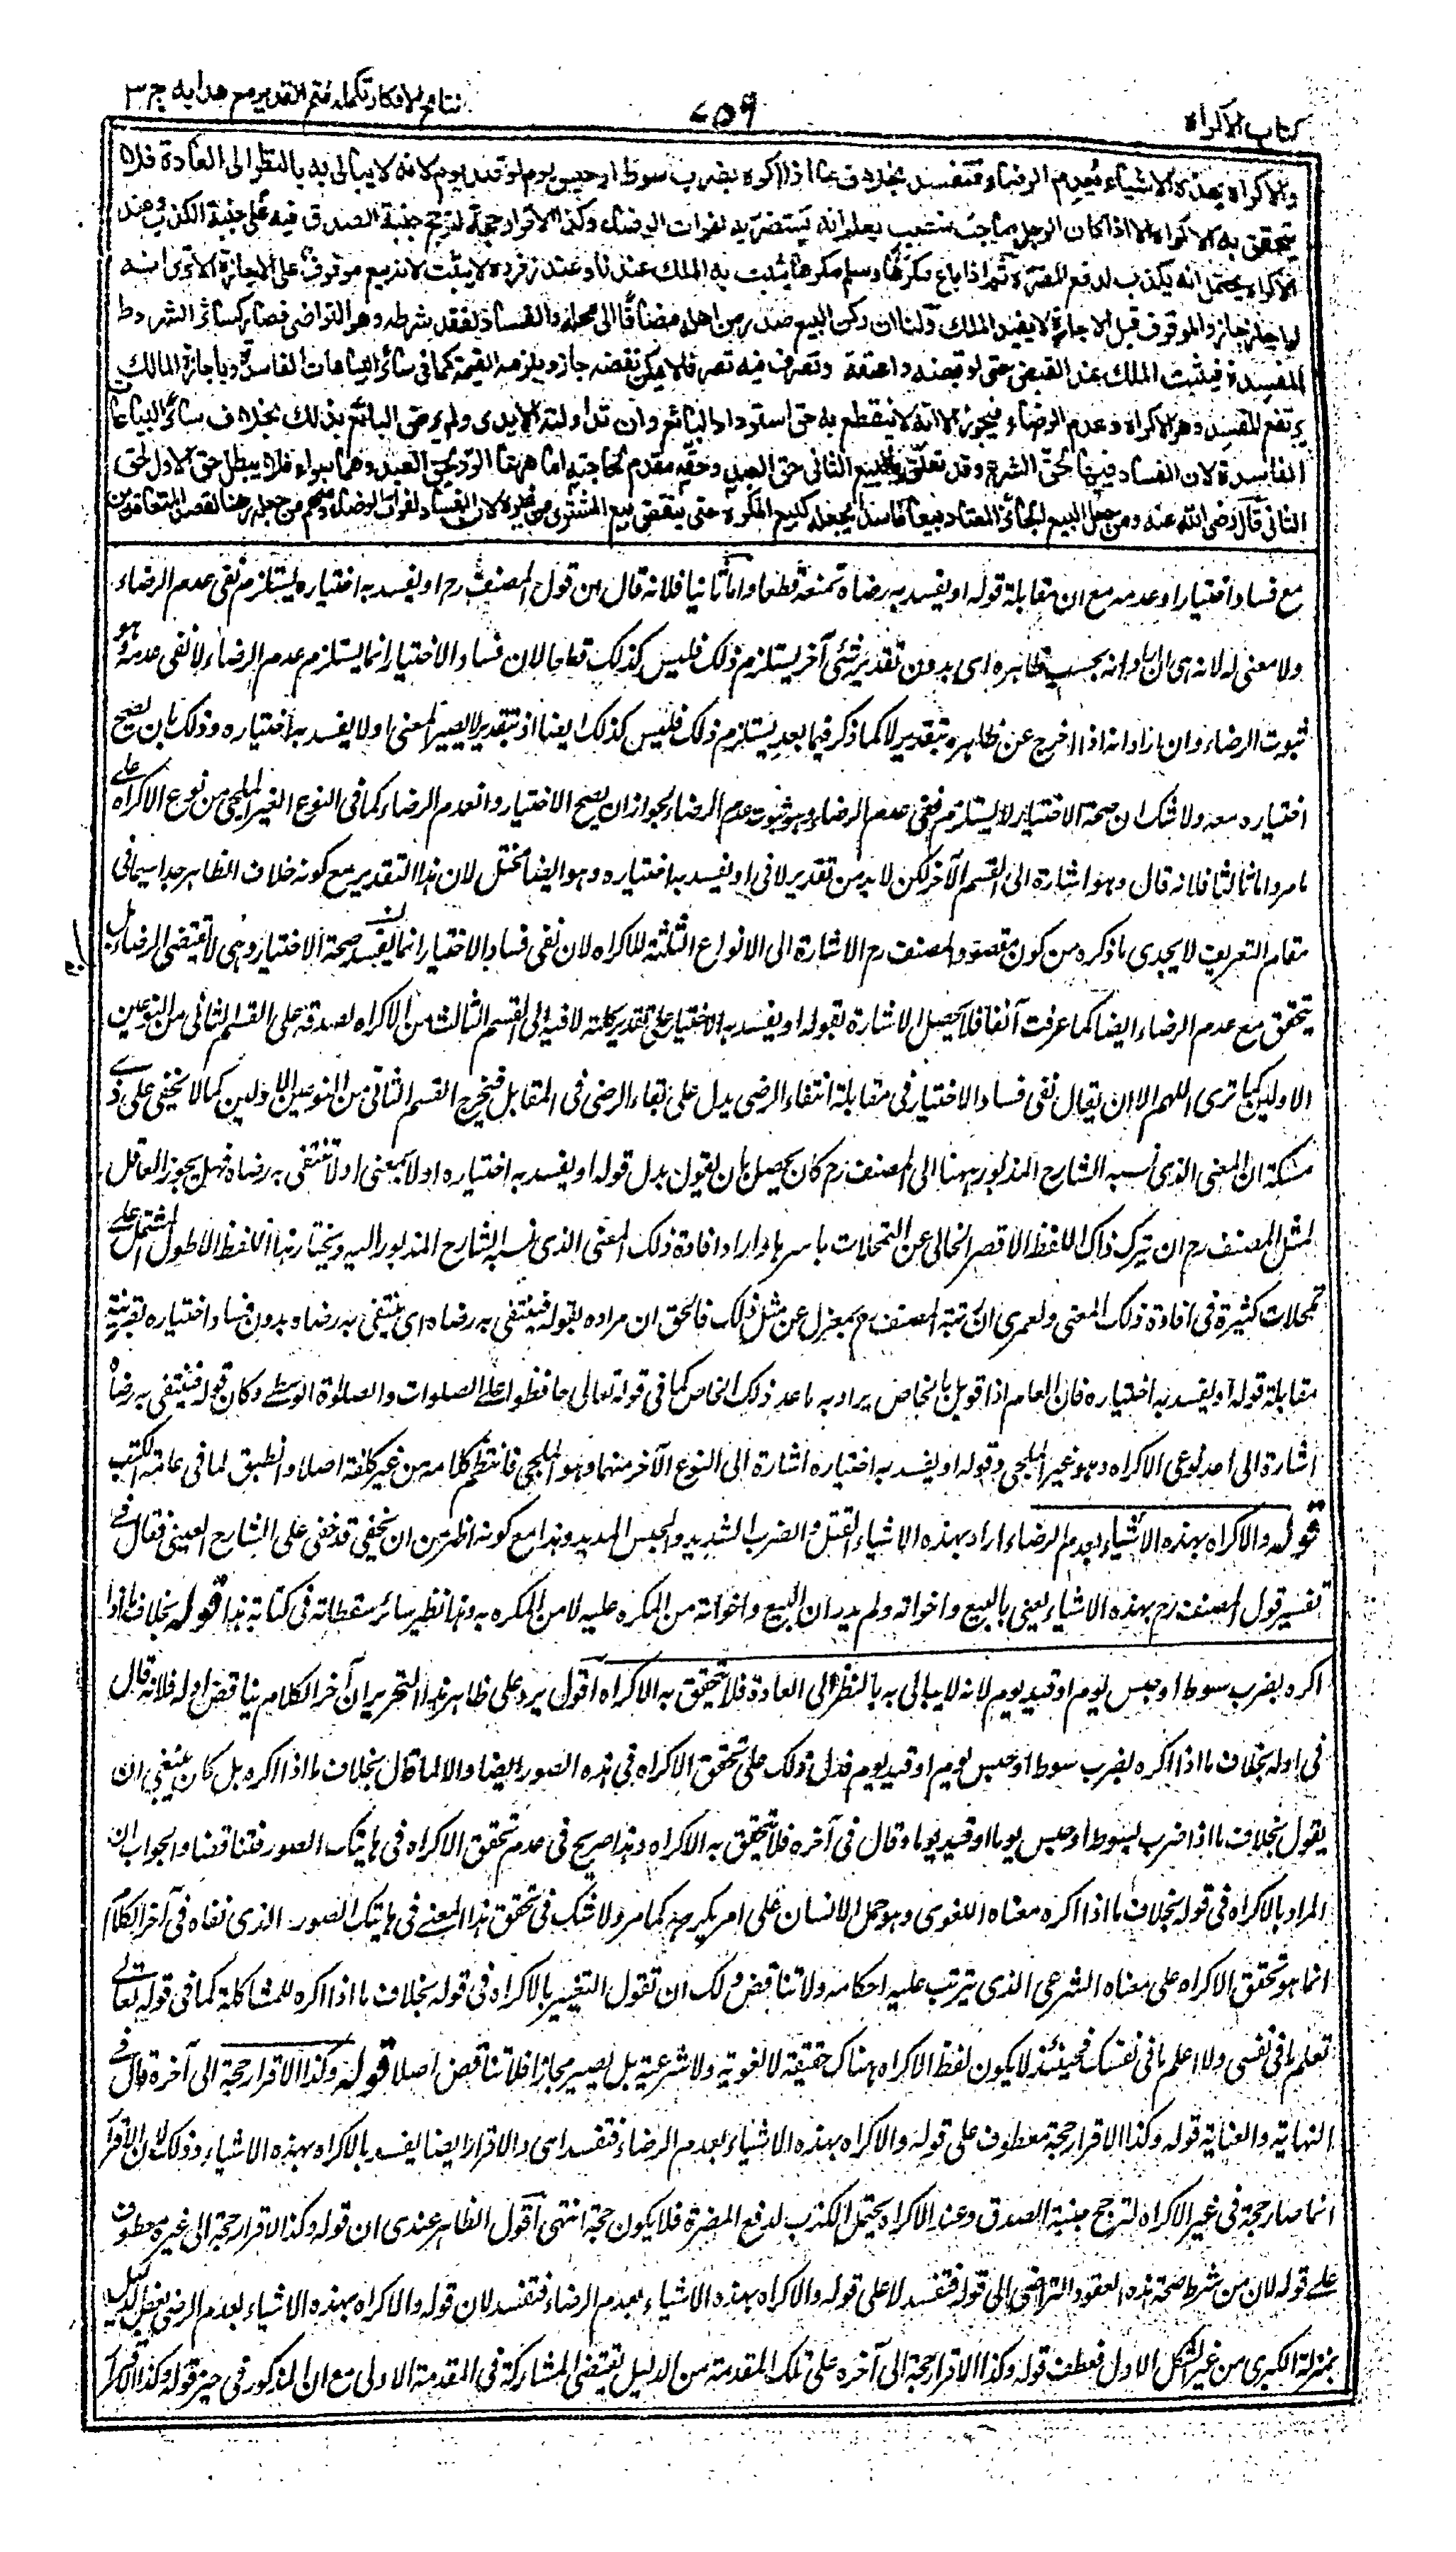 كتاب الاكراه
٧٥٩
نتائج الافكار تكمله فتح القدير مع هدايه ج ٣
والاكراه بهذه الاشياء يُعدِم الرضاء فتفسد بخلاف ما اذا اكره بضرب سوط او حبس يوم او قيد يوم لانه لا يبالى به بالنظر الى العادة فلا
يتحقق به الاكراه الا اذا كان الرجل صاحب منصب يعلم انه يستضر به لفوات الرضاء وكذا الاقرار حجة لترجح جنبة الصدق فيه على جنبة الكذب وعند
الاكراه يحتمل انه يكذب لدفع المضرة ثم اذا باع مكرها وسلم مكرها يثبت به الملك عندنا وعند زفر ره لا يثبت لانه بيع موقوف على الاجازة الا ترى انه
لو اجاز جاز والموقوف قبل الاجازة لا يفيد الملك ولنا ان ركن البيع صدر من اهله مضافا الى محله والفساد لفقد شرطه وهو التراضى فصار كسائر الشروط
المفسدة فيثبت الملك عند القبض حتى لو قبضه واعتقه وتصرف فيه تصرفا لا يمكن نقضه جاز ويلزمه القيمة كما فى سائر البياعات الفاسدة وباجازة المالك
يرتفع المفسد وهو الاكراه وعدم الرضاء فيجوز الا انه لا ينقطع به حق استرداد البائع وان تداولته الايدى ولم يرض البائع بذلك بخلاف سائر البياعات
الفاسدة لان الفساد فيها لحق الشرع وقد تعلق بالبيع الثانى حق العبد وحقه مقدم لحاجته اما ههنا الرد لحق العبد وهما سواء فلا يبطل حق الاول لحق
الثانى قال رضى الله عنه ومن جعل البيع الجائز المعتاد بيعا فاسدا يجعله كبيع المكره حتى ينقض بيع المشترى من غيره لان الفساد لفوات الرضاء ومنهم من جعله رهنا لقصد المتعاقدين
مع فساد اختياره او عدمه مع ان مقابلة قوله او يفسد به رضاه تمنعه قطعا واما ثانيا فلانه قال ان قول المصنف رح او يفسد به اختياره يستلزم نفى عدم الرضاء
ولا معنى له لانه ان اراد انه بحسب ظاهره اى بدون تقدير شئ آخر يستلزم ذلك فليس كذلك قطعا لان فساد الاختيار انما يستلزم عدم الرضاء لا نفى عدمه وهو
ثبوت الرضاء وان اراد انه اذا اخرج عن ظاهره بتقدير لا كما ذكر فيما بعد يستلزم ذلك فليس كذلك ايضا اذ بتقدير لا يصير المعنى او لا يفسد به اختياره وذلك بان يصح
اختياره معه ولا شك ان صحة الاختيار لا يستلزم نفى عدم الرضاء وهو ثبوت عدم الرضاء لجواز ان يصح الاختيار وانعدم الرضاء كما فى النوع الغير الملجى من نوع الاكراه على
ما مر واما ثالثا فلانه قال وهو اشارة الى القسم الآخر لكن لا بد من تقدير لا فى او يفسد به اختياره وهو ايضا مختل لان هذا التقدير مع كونه خلاف الظاهر جدا سيما فى
مقام التعريف لا يجدى ما ذكره من كون مقصود المصنف رح الاشارة الى الانواع الثلثة للاكراه لان نفى فساد الاختيار انما يفيد صحة الاختيار وهى لا تقتضى الرضاء بل
يتحقق مع عدم الرضاء ايضا كما عرفت آنفا فلا يحصل الاشارة بقوله او يفسد به الاختيار على تقدير كلمة لا فيه الى القسم الثالث من الاكراه لصدقه على القسم الثانى من النوعين
الاولين كما ترى اللهم الا ان يقال نفى فساد الاختيار فى مقابلة انتفاء الرضى يدل على بقاء الرضى فى المقابل فيخرج القسم الثانى من النوعين الاولين كما لا يخفى على ذى
مسكة ان المعنى الذى نسبه الشارح المذكور ههنا الى المصنف رح كان يحصل بان يقول بدل قوله او يفسد به اختياره او لا بمعنى او لا تنتفى به رضاه فهل يجوز العاقل
لمثل المصنف رح ان يترك ذاك اللفظ الاقصر الخالى عن التمحلات باسرها واراد افادة ذلك المعنى الذى نسبه الشارح المذكور اليه ويختار هذا اللفظ الاطول المشتمل على
تمحلات كثيرة فى افادة ذلك المعنى ولعمرى ان رتبة المصنف رح بمعزل عن مثل ذلك فالحق ان مراده بقوله فينتفى به رضاه اى ينتفى به رضاه بدون فساد اختياره بقرينة
مقابلة قوله او يفسد به اختياره فان العام اذا قوبل بالخاص يراد به ما عدا ذلك الخاص كما فى قوله تعالى حافظوا على الصلوات والصلوة الوسطى وكان قوله فينتفى به رضاه
اشارة الى احد نوعى الاكراه وهو غير الملجى وقوله او يفسد به اختياره اشارة الى النوع الآخر منهما وهو الملجى فانتظم كلامه من غير كلفة اصلا وانطبق لما فى عامة الكتب
قوله والاكراه بهذه الاشياء يعدم الرضاء اراد بهذه الاشياء القتل والضرب الشديد والحبس المديد وهذا مع كونه اظهر من ان يخفى قد خفى على الشارح العينى فقال فى
تفسير قول المصنف رح بهذه الاشياء يعنى بالبيع واخواته ولم يدر ان البيع واخواته من المكره عليه لا من المكره به وهذا نظير سائر سقطاته فى كتابه هذا قوله بخلاف ما اذا
اكره بضرب سوط او حبس يوم او قيد يوم لانه لا يبالى به بالنظر الى العادة فلا يتحقق به الاكراه اقول يرد على ظاهر هذا التحرير ان آخر الكلام يناقض اوله فلانه قال
فى اوله بخلاف ما اذا اكره بضرب سوط او حبس يوم او قيد يوم فدل ذلك على تحقق الاكراه فى هذه الصور ايضا والا لما قال بخلاف ما اذا اكره بل كان ينبغى ان
يقول بخلاف ما اذا ضرب بسوط او حبس يوما او قيد يوما وقال فى آخره فلا يتحقق به الاكراه وهذا صريح فى عدم تحقق الاكراه فى هاتيك الصور فتناقضا والجواب ان
المراد بالاكراه فى قوله بخلاف ما اذا اكره معناه اللغوى وهو حمل الانسان على امر يكرهه كما مر ولا شك فى تحقق هذا المعنى فى هاتيك الصور الذى نفاه فى آخر الكلام
انما هو تحقق الاكراه على معناه الشرعى الذى يترتب عليه احكامه ولا تناقض ولك ان تقول التعبير بالاكراه فى قوله بخلاف ما اذا اكره للمشاكلة كما فى قوله تعالى
تعلم ما فى نفسى ولا اعلم ما فى نفسك فحينئذ لا يكون لفظ الاكراه هناك حقيقة لا لغوية ولا شرعية بل يصير مجازا فلا تناقض اصلا قوله وكذا الاقرار حجة الى آخره قال فى
النهاية والعناية قوله وكذا الاقرار حجة معطوف على قوله والاكراه بهذه الاشياء يعدم الرضاء فتفسد اى والاقرار ايضا يفسد بالاكراه بهذه الاشياء وذلك لان الاقرار
انما صار حجة فى غير الاكراه لترجح جنبة الصدق وعند الاكراه يحتمل الكذب لدفع المضرة فلا يكون حجة انتهى اقول الظاهر عندى ان قوله وكذا الاقرار حجة الى غيره معطوف
على قوله لان من شرط صحة هذه العقود التراضى الى قوله فتفسد لا على قوله والاكراه بهذه الاشياء يعدم الرضاء فتفسد لان قوله والاكراه بهذه الاشياء يعدم الرضى بعض الدليل
بمنزلة الكبرى من غير الشكل الاول فعطف قوله وكذا الاقرار حجة الى آخره على تلك المقدمة من الدليل يقتضى المشاركة فى المقدمة الاولى مع ان المذكور فى حيز قوله وكذا الاقرار